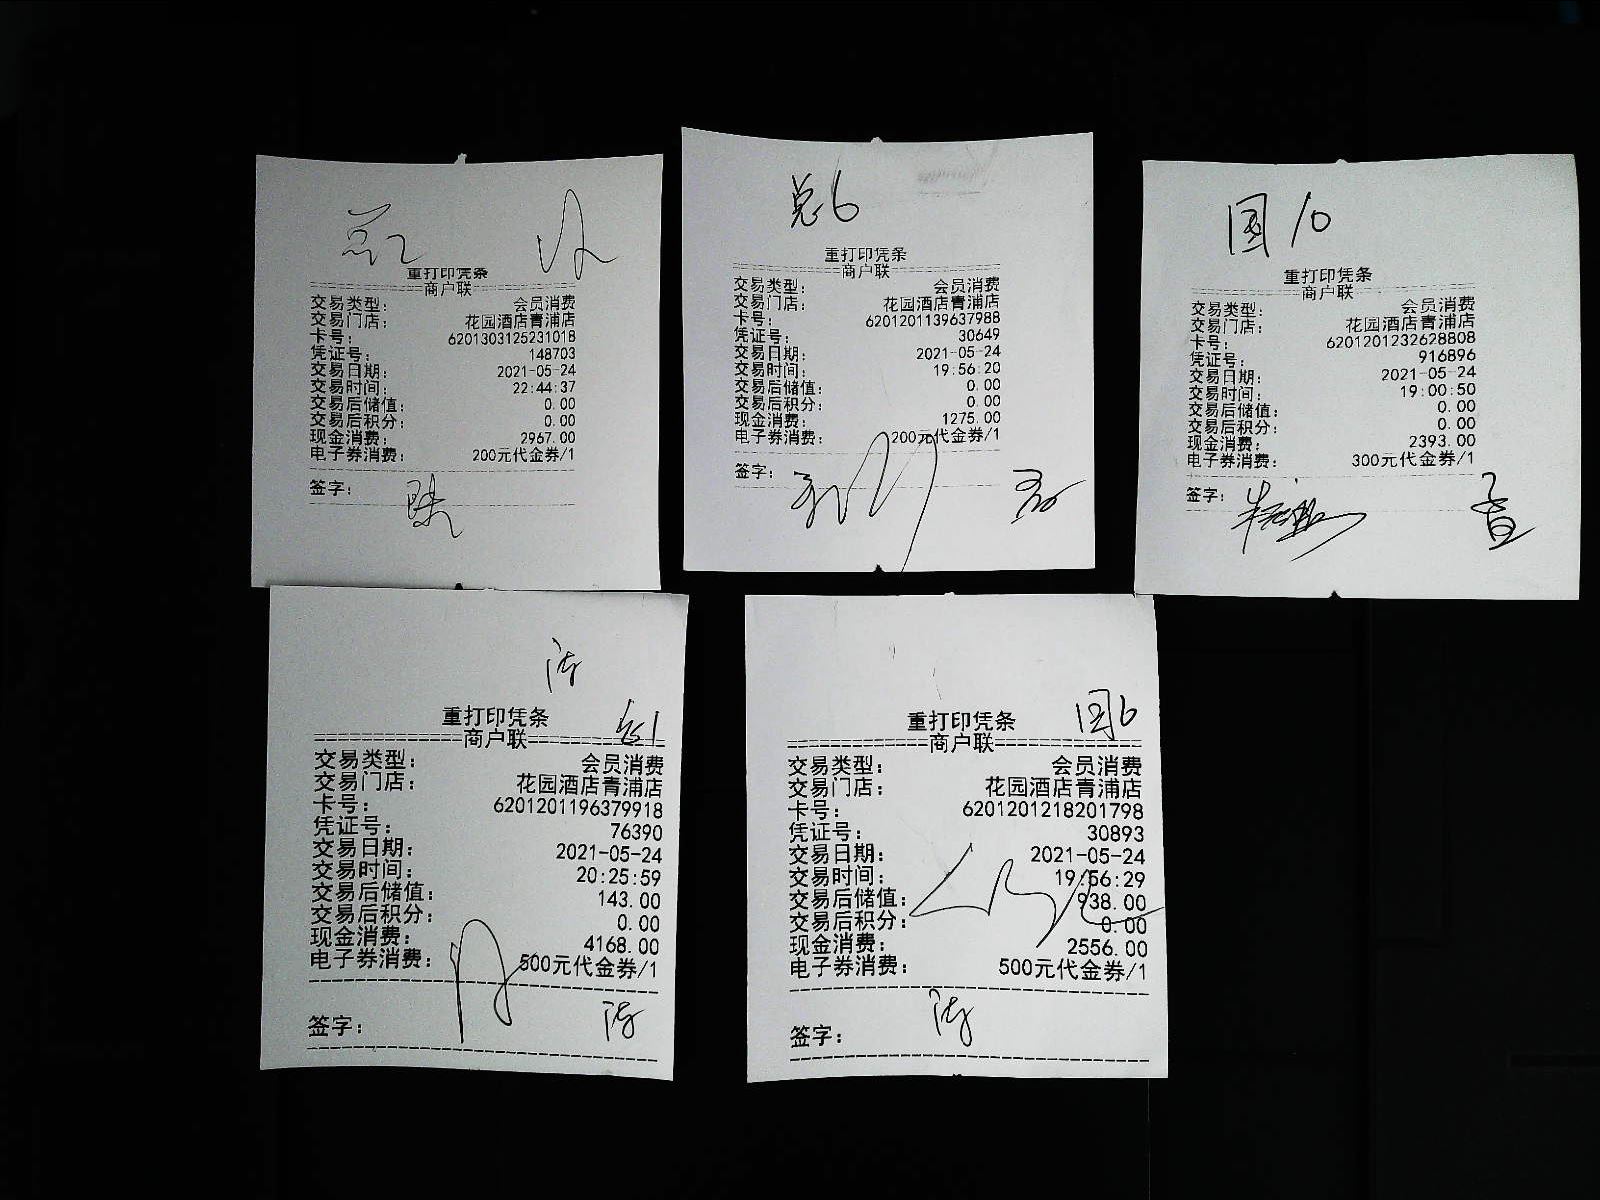 重打印凭条
==============商户联==============
交易类型： 会员消费
交易门店： 花园酒店青浦店
卡号： 6201303125231018
凭证号： 148703
交易日期： 2021-05-24
交易时间： 22:44:37
交易后储值： 0.00
交易后积分： 0.00
现金消费： 2967.00
电子券消费： 200元代金券/1
签字：
总6
重打印凭条
==============商户联==============
交易类型： 会员消费
交易门店： 花园酒店青浦店
卡号： 6201201139637988
凭证号： 30649
交易日期： 2021-05-24
交易时间： 19:56:20
交易后储值： 0.00
交易后积分： 0.00
现金消费： 1275.00
电子券消费： 200元代金券/1
签字：
国10
重打印凭条
==============商户联==============
交易类型： 会员消费
交易门店： 花园酒店青浦店
卡号： 6201201232628808
凭证号： 916896
交易日期： 2021-05-24
交易时间： 19:00:50
交易后储值： 0.00
交易后积分： 0.00
现金消费： 2393.00
电子券消费： 300元代金券/1
签字：
重打印凭条
==============商户联==============
交易类型： 会员消费
交易门店： 花园酒店青浦店
卡号： 6201201196379918
凭证号： 76390
交易日期： 2021-05-24
交易时间： 20:25:59
交易后储值： 143.00
交易后积分： 0.00
现金消费： 4168.00
电子券消费： 500元代金券/1
签字：
国6
重打印凭条
==============商户联==============
交易类型： 会员消费
交易门店： 花园酒店青浦店
卡号： 6201201218201798
凭证号： 30893
交易日期： 2021-05-24
交易时间： 19:56:29
交易后储值： 938.00
交易后积分： 0.00
现金消费： 2556.00
电子券消费： 500元代金券/1
签字：